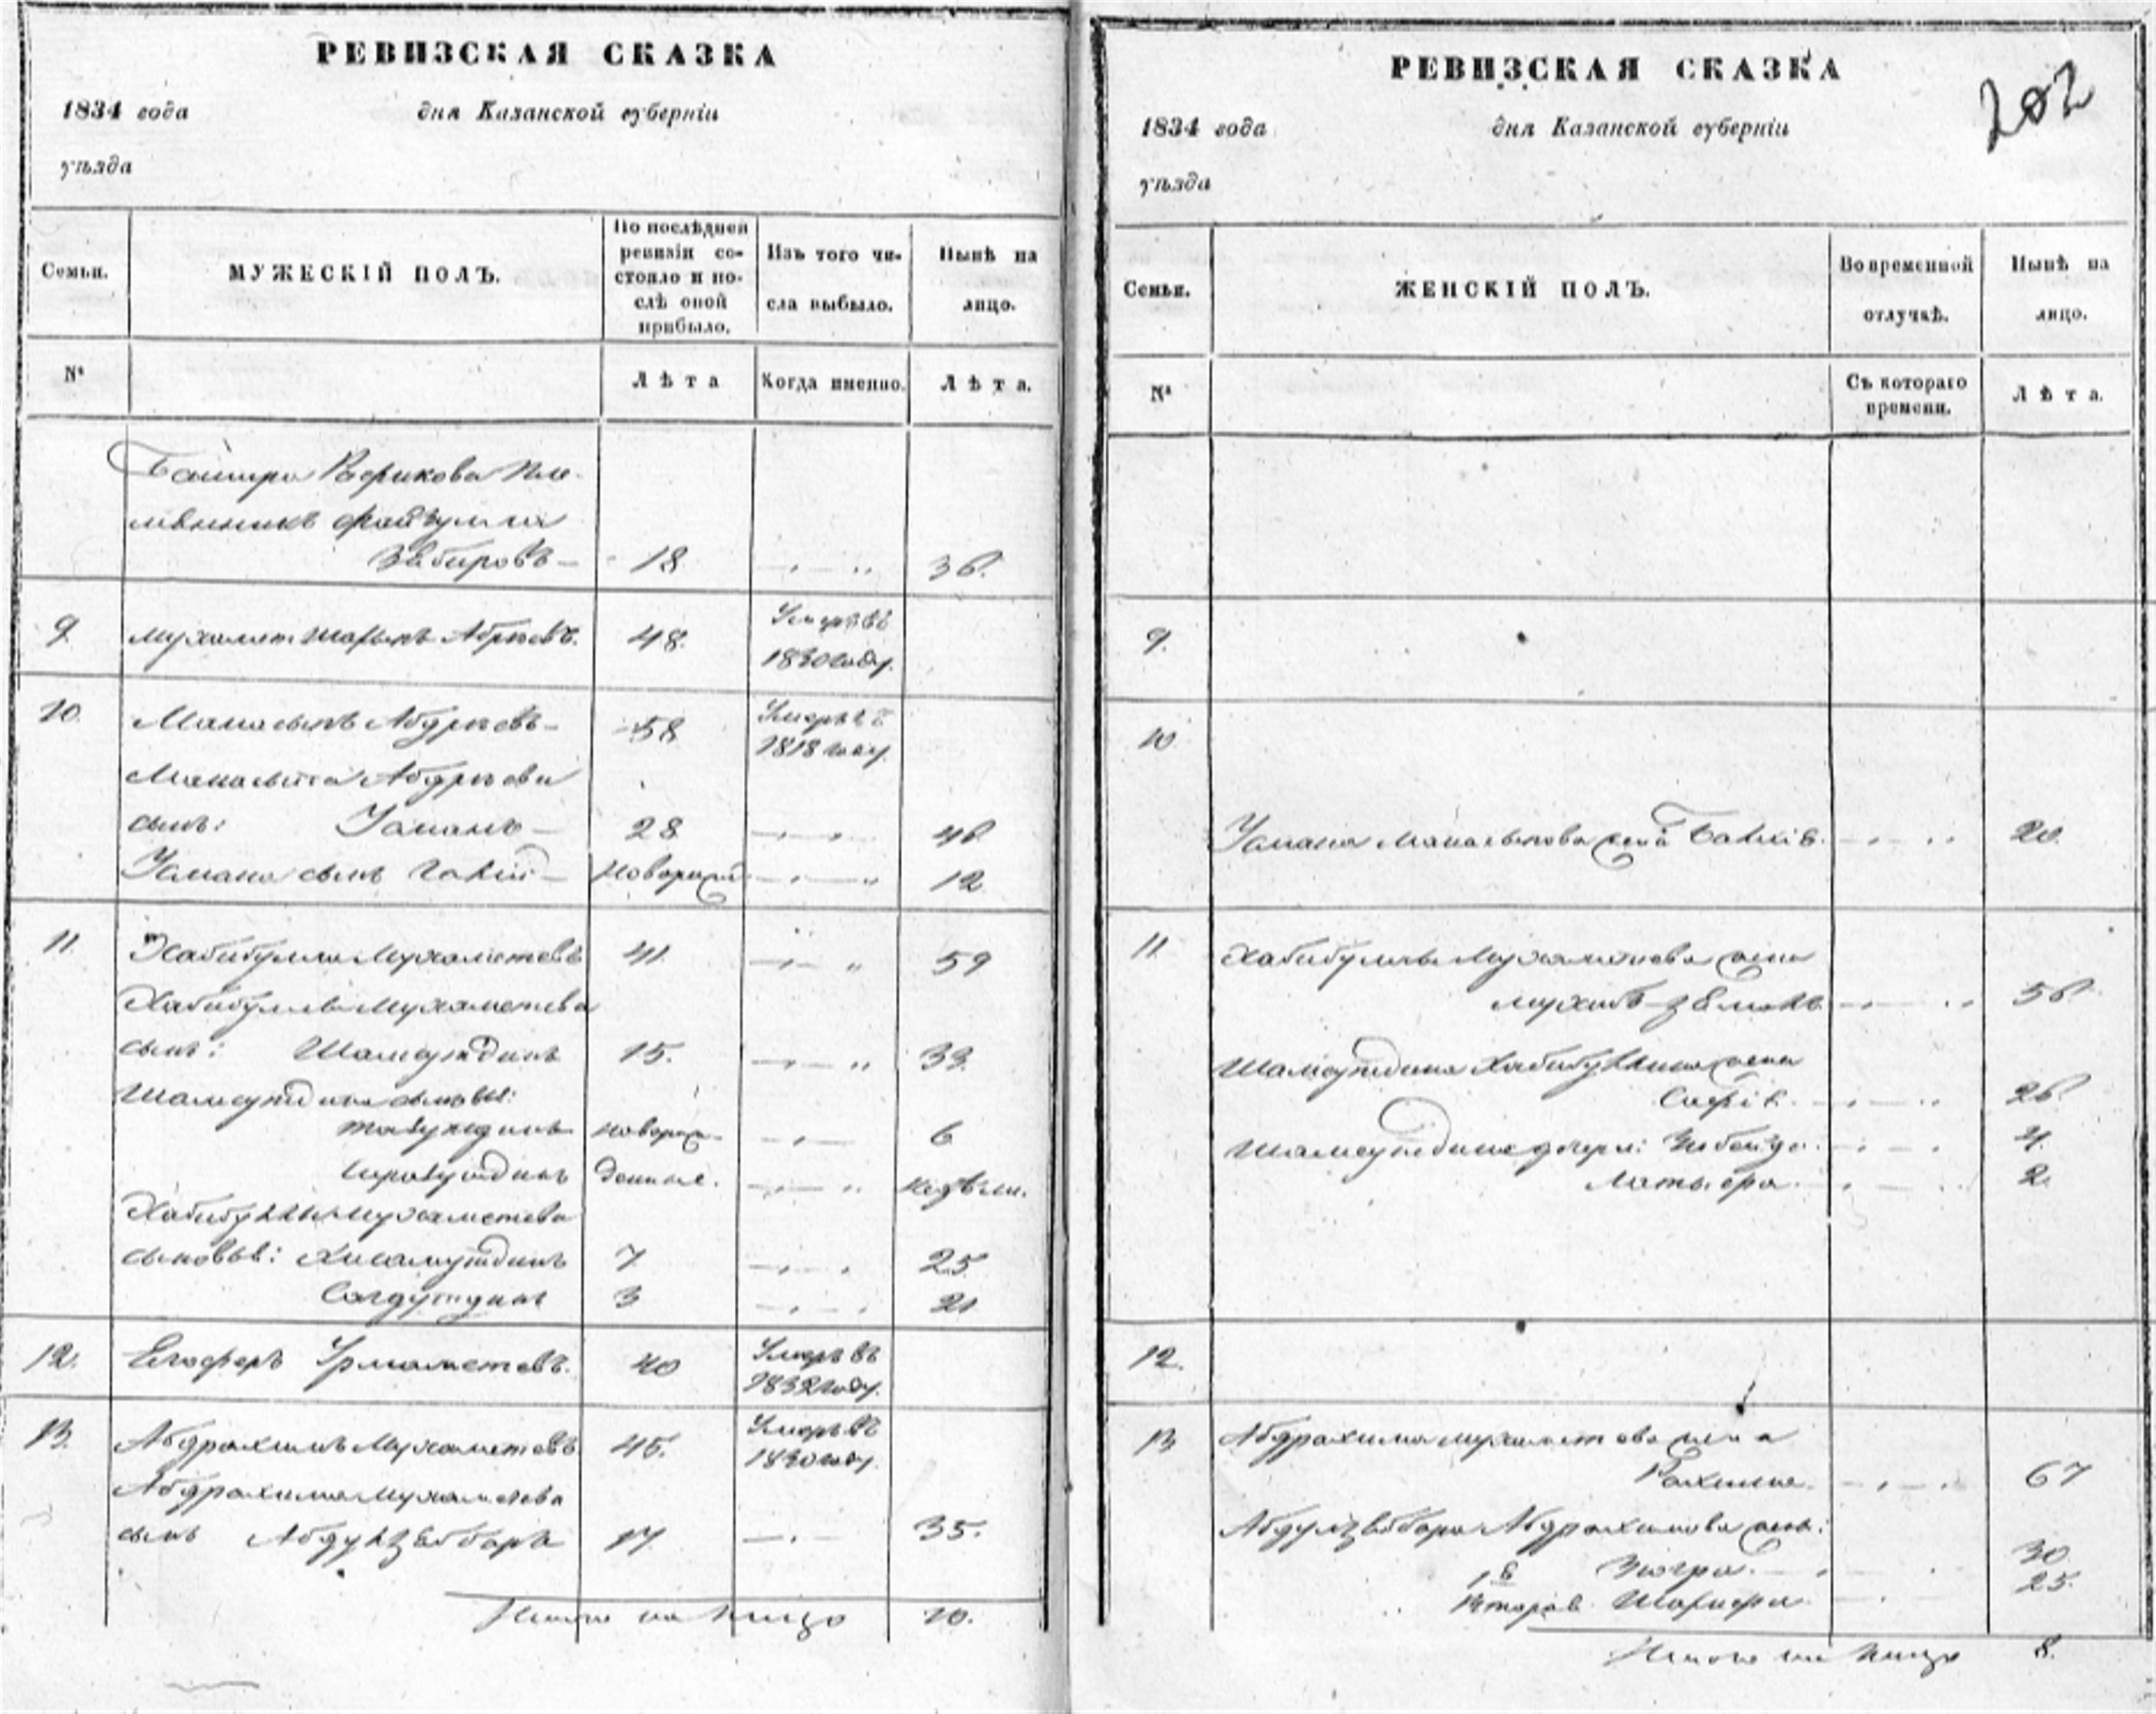 РЕВИЗСКАЯ СКАЗКА
1834 года дня Казанской губерніи
уѣзда
Семьи.
МУЖЕСКІЙ ПОЛЪ.
По послѣдней
ревизіи со-
стояло и по-
слѣ оной
прибыло.
Изъ того чи-
сла выбыло.
Нынѣ на
лицо.
№
Лѣта
Когда именно.
Лѣта.
Башира Рафикова пле-
мянникъ Файзулла
Забировъ 18 36.
9. Мухамет Шарыпъ 48. Умеръ въ
1830 году.
10. 58 Умеръ въ
1818 году.
сынъ: Усманъ 28 46
Усмана сынъ новорожд 12
11. Хабибулла Мухаметевъ 41 59
Хабибуллы Мухаметева
сынъ: Шамсутдинъ 15. 33.
Шамсутдина сыновья:
новорож- 6
денные. недѣли.
Хабибуллы Мухаметева
сыновья: Хисамутдинъ 7 25
Садрутдинъ 3 21
12. Урмаметевъ. 40 Умеръ въ
1832 году.
13. Абдрахимъ Мухаметевъ 45. Умеръ въ
1830 году.
Абдрахима Мухаметева
сынъ Абдулзяббаръ 17 35.
Итого на лицо 10.
РЕВИЗСКАЯ СКАЗКА
202
1834 года дня Казанской губерніи
уѣзда
Семьи.
ЖЕНСКІЙ ПОЛЪ.
Во временной
отлучкѣ.
Нынѣ на
лицо.
№
Съ котораго
времени.
Лѣта.
9.
10
Усмана жена 20.
11. Хабибуллы Мухаметева жена
56
Шамсутдина Хабибуллина жена
Сафія. 26
Шамсутдина дочери: Зюбейда. 4.
2.
12.
13 Абдрахима Мухаметова жена
Рахима. 67
Абдулзяббара Абдрахимова жены:
1я Зюгра. 30
Вторая Шарифа 25.
Итого на лицо 8.